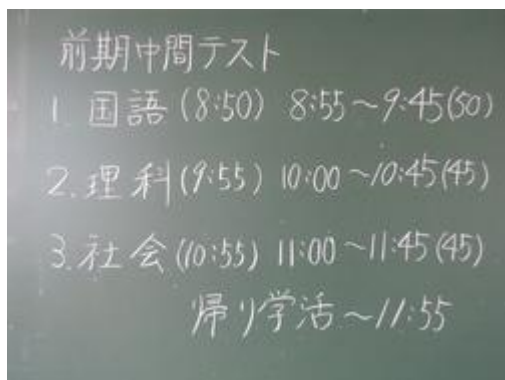 前期中間テスト
1. 国語(8:50) 8:55～9:45(50)
2. 理科(9:55) 10:00～10:45(45)
3. 社会(10:55) 11:00～11:45(45)
帰り学活～11:55